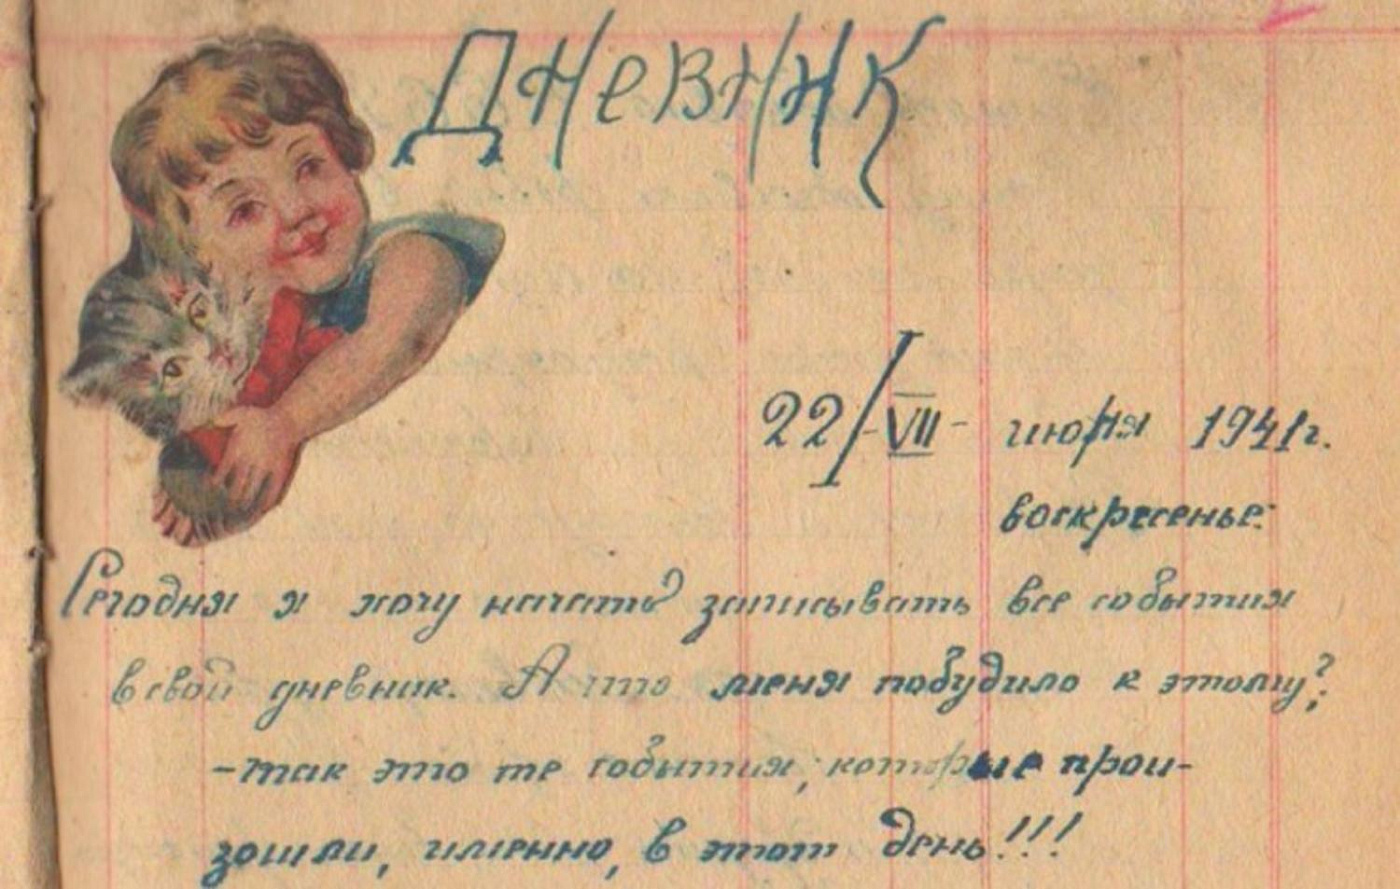 Дневник
22/-VII- июня 1941г.
воскресенье.
Сегодня я хочу начать записывать все события
в свой дневник. А что меня побудило к этому?
-так это те события, которые прои-
зошли, именно, в этот день!!!